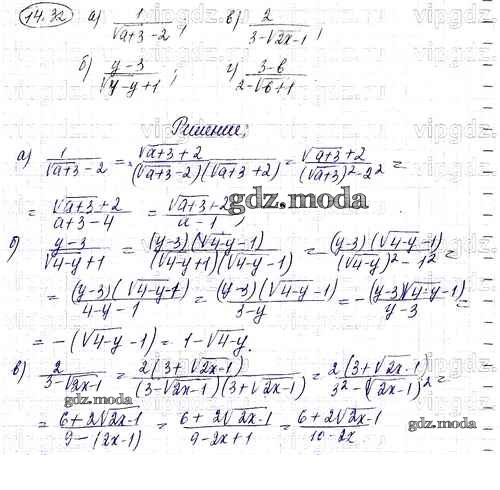 14.32 а) 1/(√a+3 - 2); в) 2/(3-√2x-1);
б) (y-3)/(√4-y+1); г) (3-b)/(2-√b+1)
Решение;
а) 1/(√a+3 - 2) = (√a+3 + 2)/((√a+3 - 2)(√a+3 + 2)) = (√a+3 + 2)/((√a+3)² - 2²) =
= (√a+3 + 2)/(a+3-4) = (√a+3 + 2)/(a-1);
gdz.moda
б) (y-3)/(√4-y+1) = (y-3)(√4-y-1)/((√4-y+1)(√4-y-1)) = (y-3)(√4-y-1)/((√4-y)² - 1²) =
= (y-3)(√4-y-1)/(4-y-1) = (y-3)(√4-y-1)/(3-y) = -(y-3)(√4-y-1)/(y-3) =
= -(√4-y-1) = 1-√4-y.
gdz.moda
в) 2/(3-√2x-1) = 2(3+√2x-1)/((3-√2x-1)(3+√2x-1)) = 2(3+√2x-1)/(3²-(√2x-1)²) =
gdz.moda
= (6+2√2x-1)/(9-(2x-1)) = (6+2√2x-1)/(9-2x+1) = (6+2√2x-1)/(10-2x).
gdz.moda